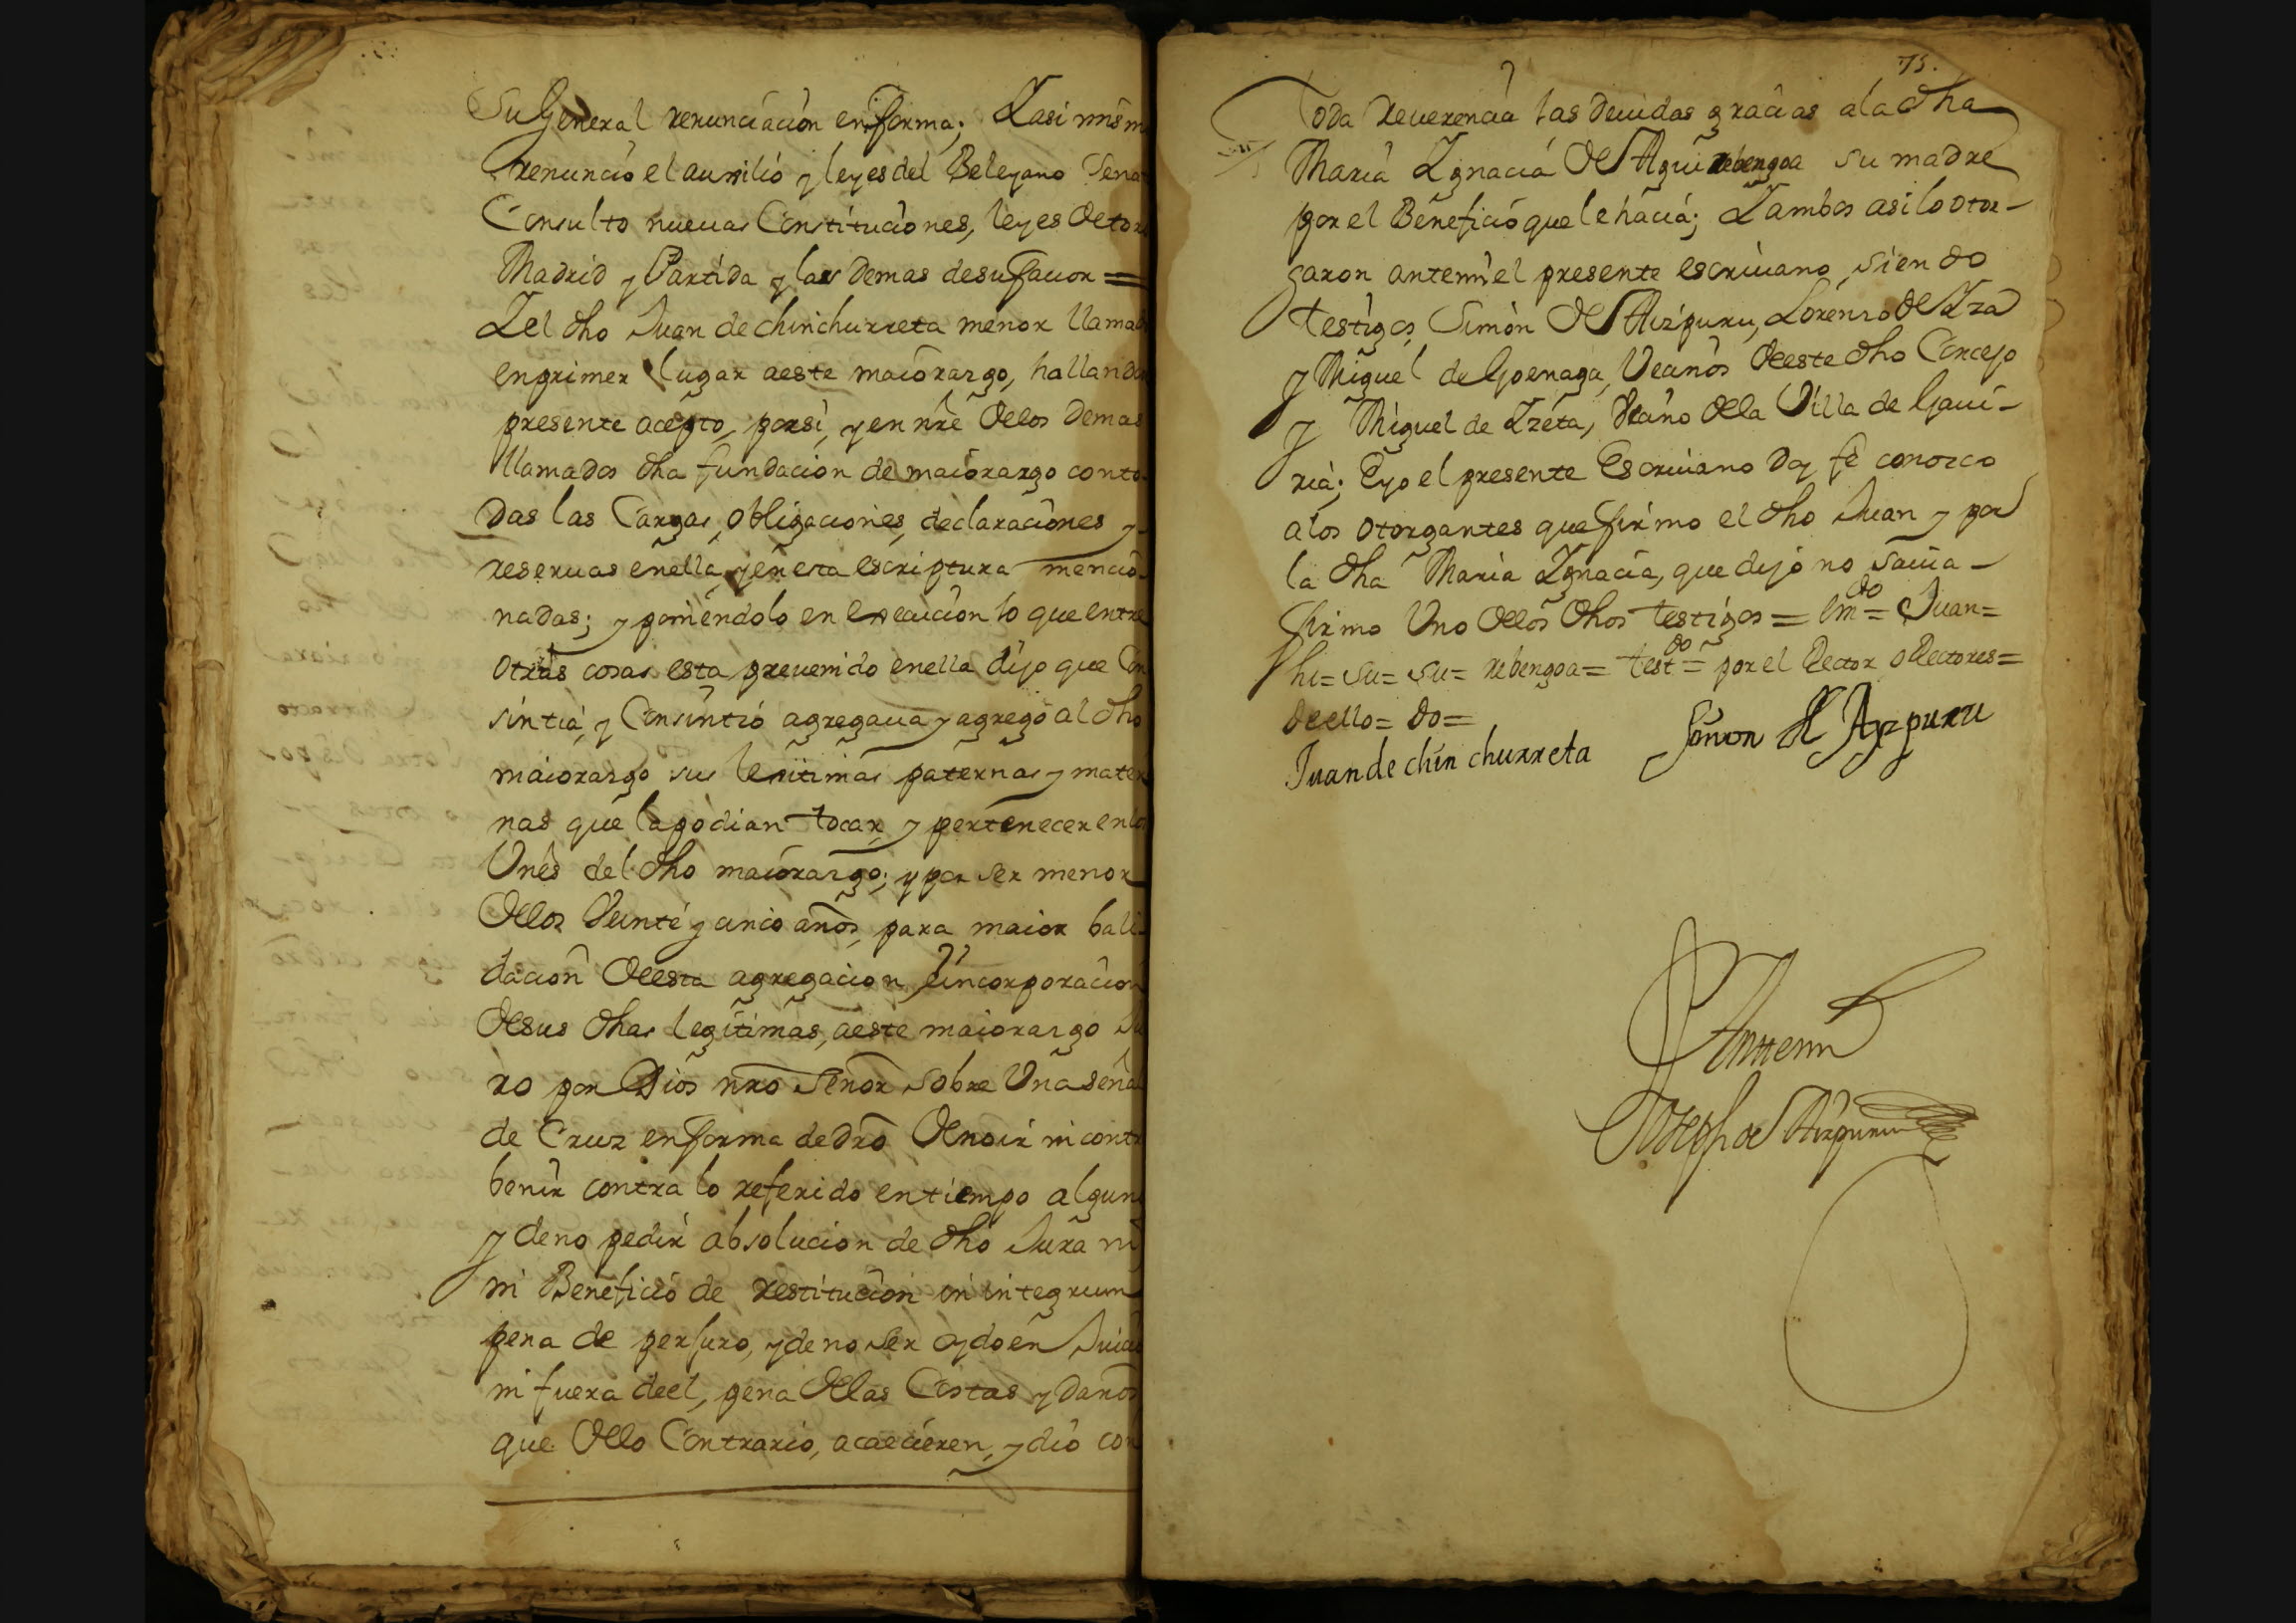 Su General renunciacion en forma; Y asi mism
renuncio el auxilio y leyes del Beleyano Sena
Consulto nueuas Constituciones, leyes de toro
Madrid y Partida y las demas de su fauor =
Y el dho Juan de chinchurreta menor llamad
en primer lugar a este maiorazgo, halland
presente acepto, por si, y en nre de los demas
llamados dha fundacion de maiorazgo con to-
das las Cargas, obligaciones, declaraciones y
reseruas en ella, y en esta escriptura mencio-
nadas; y poniendolo en execucion lo que entre
otras cosas esta preuenido en ella dijo que Con
sintia, y Consintio agregaua y agregó al dho
maiorazgo sus lexitimas paternas y mater
nas que la podian tocar y pertenecer en los
Vnes del dho maiorazgo; y por ser menor
de los Veinte y cinco años, para maior bali-
dacion de esta agregacion, e incorporacion
de sus dhas legitimas, a este maiorazgo Ju
ro por Dios nro Señor sobre Vna señal
de Cruz en forma de dro de no ir ni contra
benir contra lo referido en tiempo algun
y de no pedir absolucion de dho Jura m
ni Beneficio de restitucion in integrum
pena de perjuro, y de no ser oydo en Juicio
ni fuera de el, pena de las Costas y daños
que de lo Contrario, acaecieren, y dio con
75.
toda Reuerencia las deuidas gracias a la dha
Maria Ygnacia de Aguirrebengoa su madre
por el Beneficio que le hacia; Y ambos asi lo otor-
garon ante mi el presente escriuano siendo
testigos, Simon de Aizpuru, Lorenzo de Yza
y Miguel de Goenaga, Veanos de este dho Concejo
y Miguel de Yzeta, Veano de la Villa de Gaui-
ria; E yo el presente Escriuano doy fe conozco
a los otorgantes que firmo el dho Juan y por
la dha Maria Ygnacia, que dijo no sauia -
firmo Vno de los dhos testigos = Em.do = Juan =
hi = su = su = rebengoa = test.do = por el Rector o Rectores =
de ello = do =
Juan de chinchurreta Simon de Azpuru
Ante mi
Joseph de Aizpuru